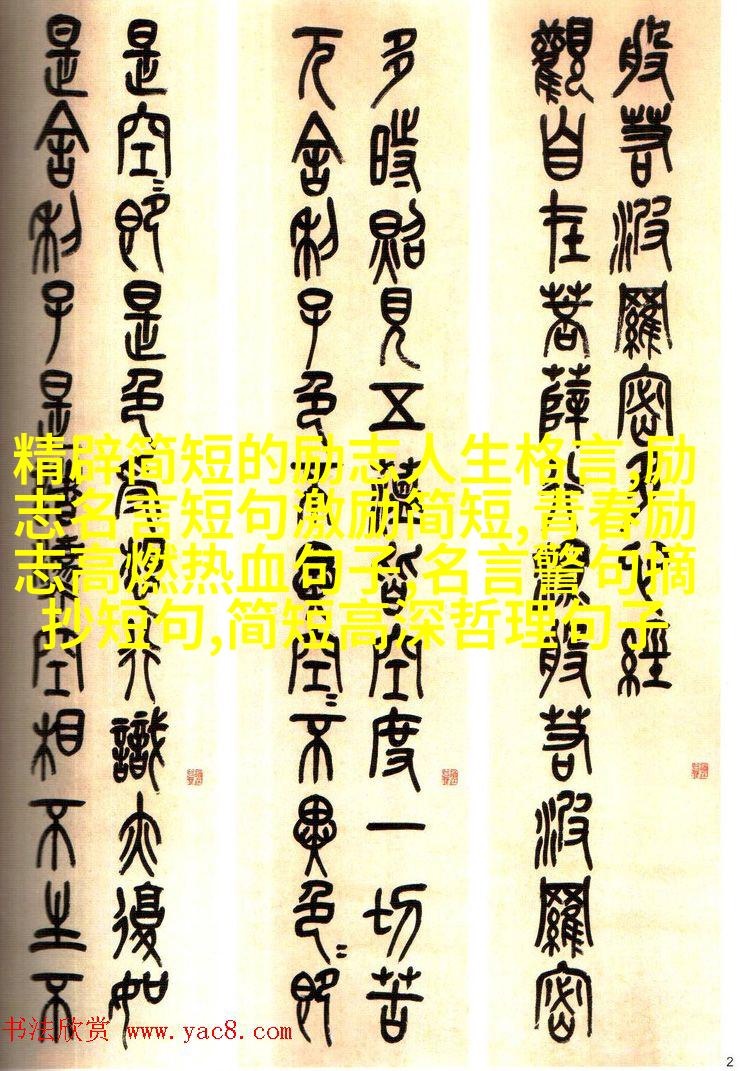 般若波羅密多心經
觀自在菩薩行深般若波羅密
多時照見五蘊皆空度一切苦
厄舍利子色不異空〻不異色〻即
是空〻即是色受想行識亦復如
是舍利子是諸法空相不生不
精辟简短的励志人生格言,励
志名言短句激励简短,青春励
志高燃热血句子,名言警句摘
抄短句,简短高深哲理句子
书法欣赏 www.yac8.com
2